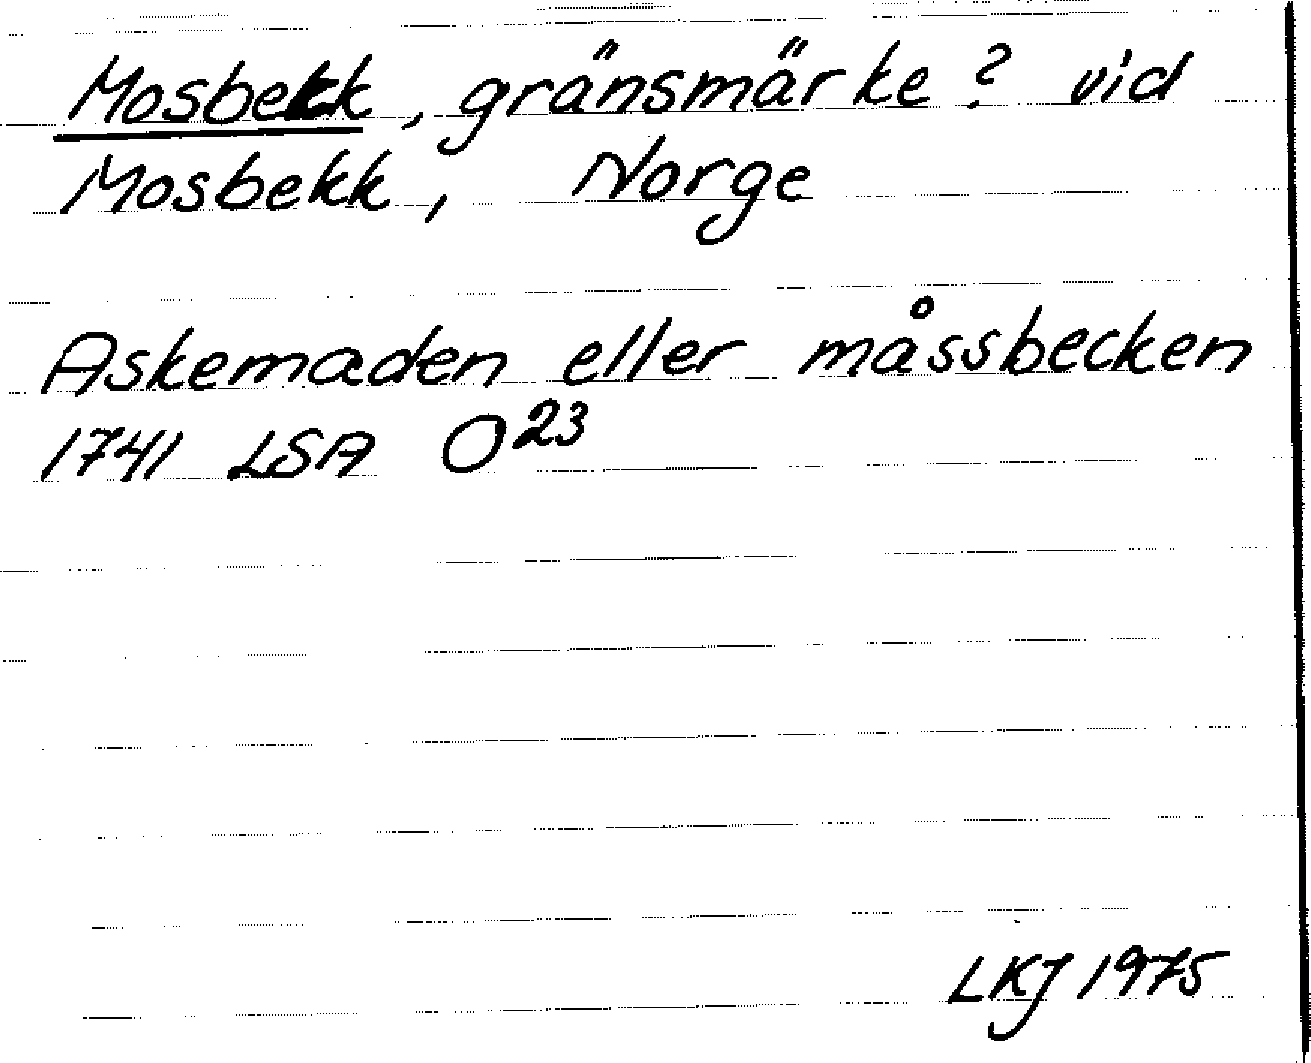 Mosbekk, gränsmärke? vid
Mosbekk, Norge
Askemaden eller måssbecken
1741 LSA O23
LKJ 1975